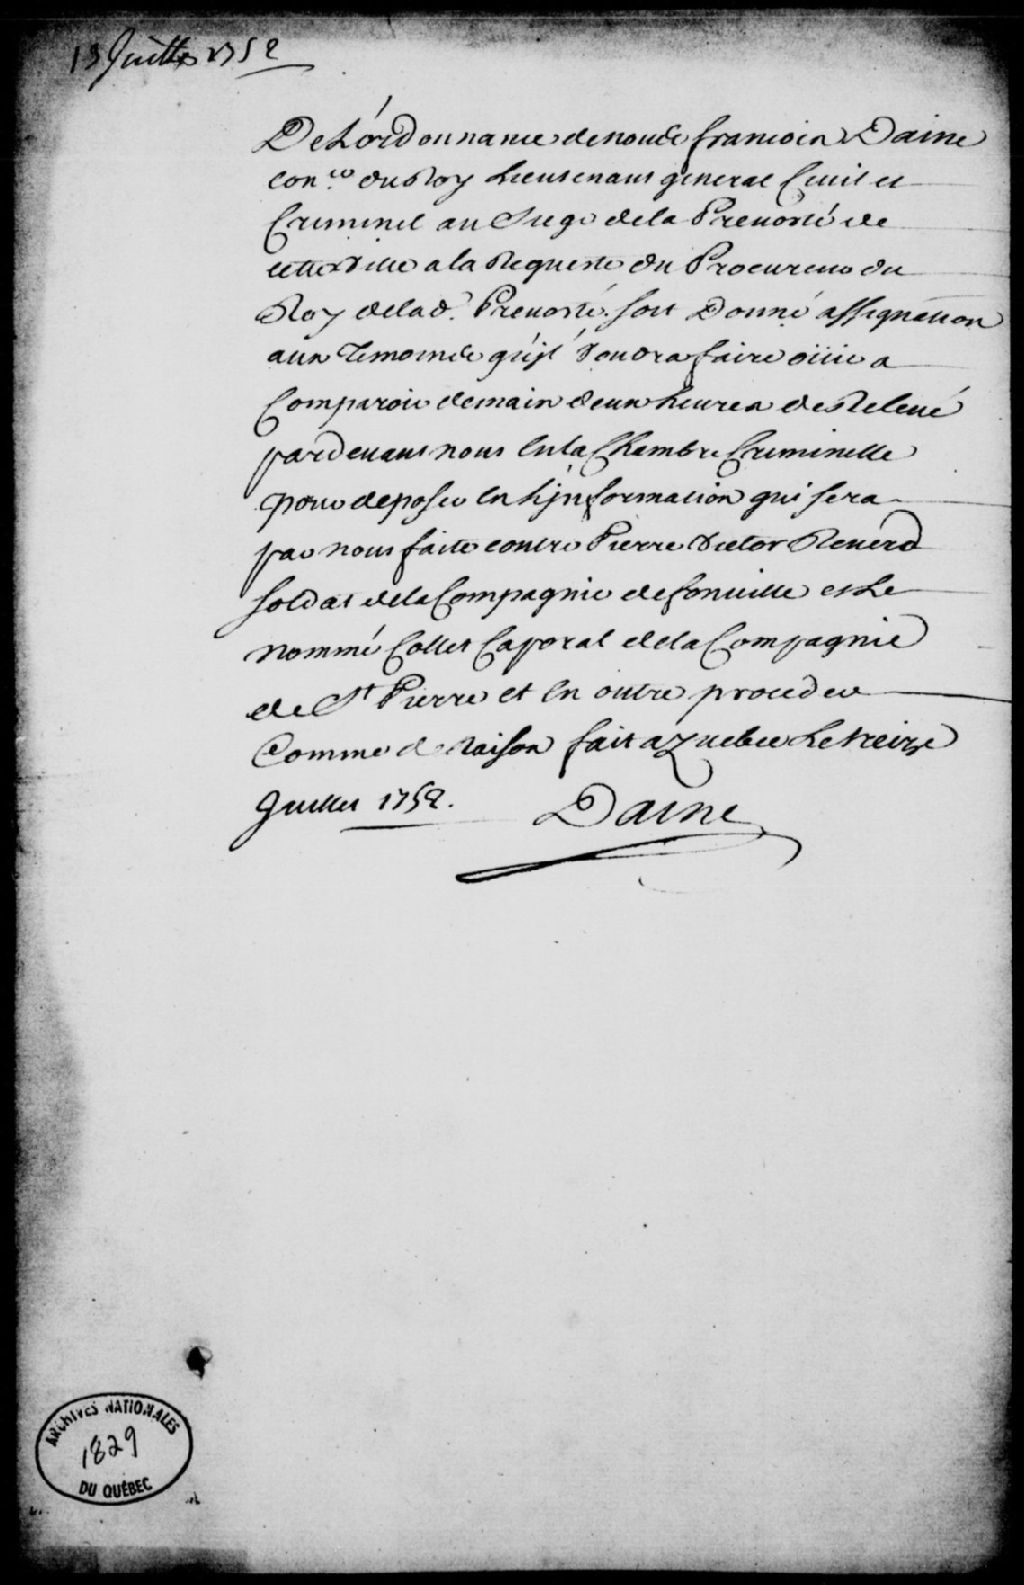 13 Juillet 1752
De L'ordonnance de nous françois Daine
con.er du Roy Lieutenant general Civil et
Criminel au Siege de la Prevosté de
cette Ville a la Requeste du Procureur du
Roy de lad. Prevosté. soit Donné assignation
aux Temoins qu'jl voudra faire oüir a
Comparoir demain deux heures de Relevé
pardevant nous En la Chambre Criminelle
pour deposer En L'jnformation qui sera
par nous faite contre Pierre Victor Reverd
soldat de la Compagnie de Lonville et Le
nommé Collet Caporal de la Compagnie
de St Pierre et En outre proceder
Comme de Raison fait a quebec Le treize
Juillet 1752.
Daine
ARCHIVES NATIONALES
1829
DU QUÉBEC